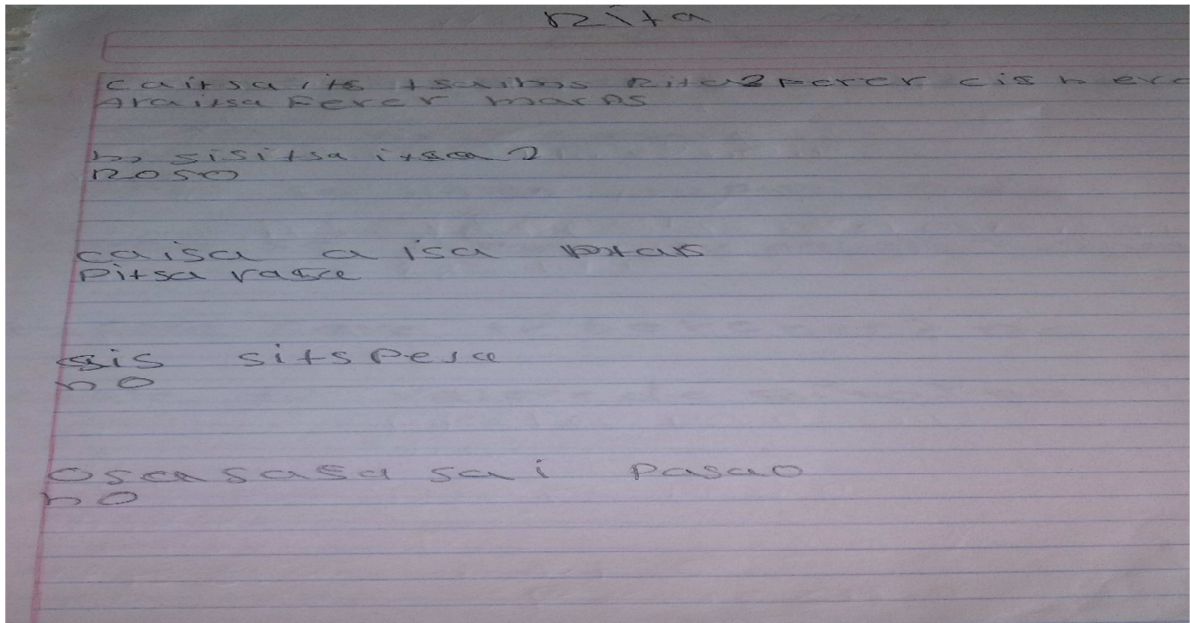 Rita
caitsa its tsaibos Rita2Ferer cis h erc
Araitsa Ferer maros
b, sisitsa itsca ?
noso
caisa a isa
Pitsa rasce
sis sits Pesa
no
Osca sasa sai Pasao
no